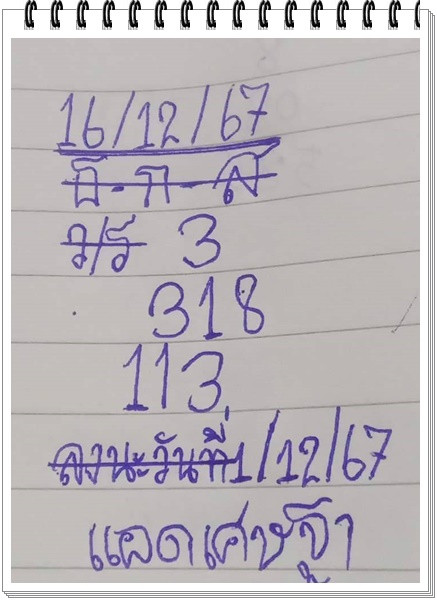 16/12/67
ธ-ก-ส
ว/ร 3
318
113
ลงนะวันที่1/12/67
แอดเศษฐี